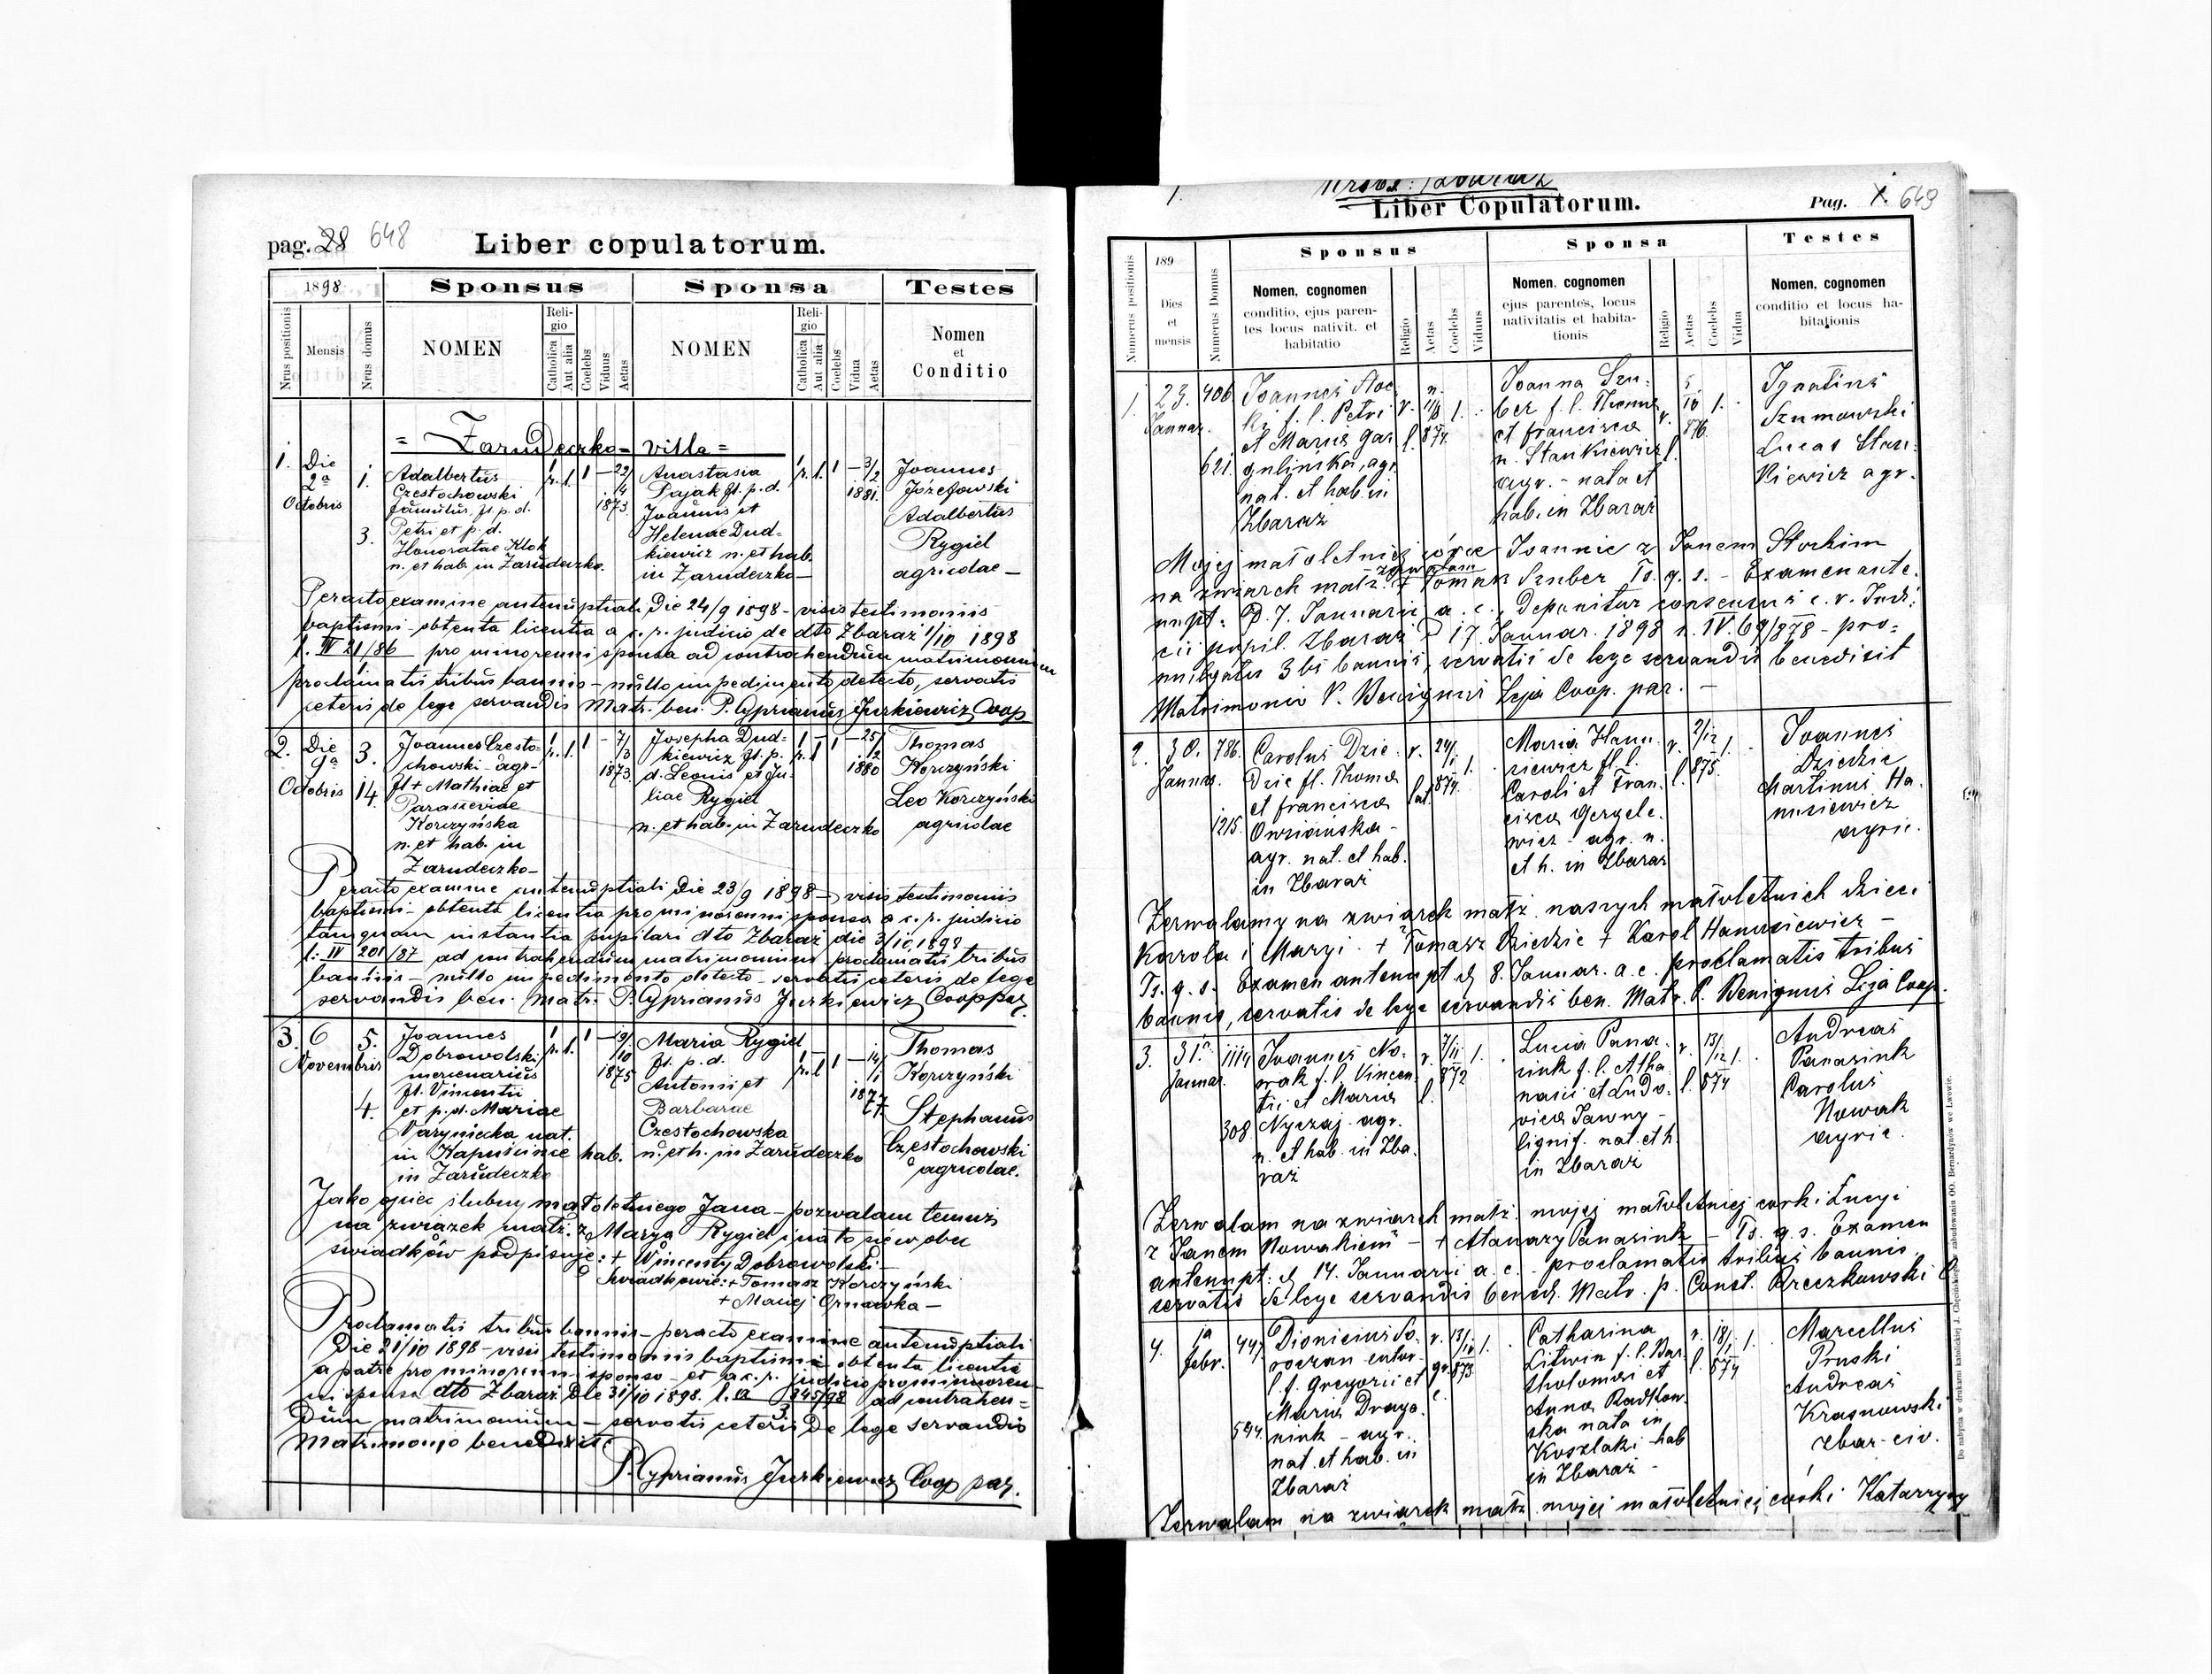 pag. 28 648
Liber copulatorum.
1898
Sponsus
Sponsa
Testes
Nrus positionis
Mensis
Nrus domus
NOMEN
Religio
Catholica
Aut alia
Coelebs
Viduus
Aetas
NOMEN
Religio
Catholica
Aut alia
Coelebs
Vidua
Aetas
Nomen
et
Conditio
= Zarudeczko - villa =
1. Die
2a
Octobris
1.
3.
Adalbertus
Czestochowski
famulus, fl. p. d.
Petri et p. d.
Honoratae Klok
n. et hab. in Zarudeczko.
r. l. 1 — 22/4
1873.
Anastasia
Pająk fl. p. d.
Joannis et
Helenae Dud=
kiewicz n. et hab.
in Zarudeczko —
r. l. 1 — 3/2
1881.
Joannes
Józefowski
Adalbertus
Rygiel
agricolae —
Peracto examine antenuptiali Die 24/9 1898 - visis testimoniis
baptismi - obtenta licentia a c. r. judicio de dto Zbaraż 1/10 1898
l. IV 21/86 pro minorenni sponsa ad contrahendum matrimonium
proclamatis tribus bannis - nullo impedimento detecto, servatis
ceteris de lege servandis Matr. ben. P. Cyprianus Jurkiewicz Coop
2. Die
9a
Octobris
3.
14.
Joannes Czesto=
chowski agr-
fl + Mathiae et
Parascevae
Korczyńska
n. et hab. in
Zarudeczko —
r. l. 1 — 7/3
1873.
Josepha Dud=
kiewicz fl. p.
d. Leonis et Ju=
liae Rygiel
n. et hab. in Zarudeczko
r. l. 1 — 25/12
1880
Thomas
Korczyński
Leo Korczyński
agricolae
Peracto examine antenuptiali Die 23/9 1898 — visis testimoniis
baptismi - obtenta licentia pro minorenni sponsa a c. r. judicio
tanquam instantia pupilari dto Zbaraż die 3/10 1898
l: IV 201/87 ad contrahendum matrimonium proclamatis tribus
bannis - nullo impedimento detecto - servatis ceteris de lege
servandis ben. Matr. P. Cyprianus Jurkiewicz Coop par.
3. 6
Novembris
5.
4.
Joannes
Dobrowolski
mercenarius
fl. Vincentii
et p. d. Mariae
Waryniecka nat.
in Kapuścince hab.
in Zarudeczko
r. l. 1 — 19/10
1875
Maria Rygiel
fl. p. d.
Antonii et
Barbarae
Czestochowska
n. et h. in Zarudeczko
r. l 1 — 14/1
1877
Thomas
Korczyński
Stephanus
Częstochowski
agricolae.
Jako ojciec ślubny małoletniego Jana — pozwalam temuż
na związek małż. z Maryą Rygiel i na to się w obec
świadków podpisuję: + Wincenty Dobrowolski —
Świadkowie: + Tomasz Korczyński
+ Maciej Ornawka —
Proclamatis tribus bannis - peracto examine antenuptiali
Die 21/10 1898 - visis testimoniis baptismi - obtenta licentia
a patre pro minorenni sponso - et a c. r. judicio pro minoren=
ni sponsa dto Zbaraż Die 31/10 1898. l. 345/98 ad contrahen=
dum matrimonium — servatis ceteris de lege servandis
Matrimonio benedixit:
P. Cyprianus Jurkiewicz Coop par.
1.
Liber Copulatorum.
Pag. 1. 649
Numerus positionis
189
Dies
et
mensis
Numerus Domus
Sponsus
Nomen, cognomen
conditio, ejus paren-
tes locus nativit. et
habitatio
Religio
Aetas
Coelebs
Viduus
Sponsa
Nomen, cognomen
ejus parentes, locus
nativitatis et habita-
tionis
Religio
Aetas
Coelebs
Vidua
Testes
Nomen, cognomen
conditio et locus ha-
bitationis
1. 23.
Januar.
406
621.
Joannes Stoc
ki f. l. Petri
et Maria Gas
gulińska, agr.
nat. et hab. in
Zbaraż
r.
l. 874.
1.
Joanna Szu-
ber f. l. Thomae
et Francisca
n. Stankiewicz
agr. - nata et
hab. in Zbaraż
r.
l.
5/10
876.
1.
Ignatius
Szumowski
Lucas Stan-
kiewicz agr.
Mojej małoletniej córce Joannie z Janem Stockim
na związek małż. zezwalam + Tomasz Szuber Ts. q. s. - Examen ante-
nupt. D. 7. Januarii a. c., Deponitur consensus c. r. Judi-
cii pupil. Zbaraż D 17. Januar. 1898 n. IV. 69/878 - pro=
mulgatis 3bs bannis, servatis de lege servandis benedixit
Matrimonio P. Benignus Leja Coop. par. —
2. 30.
Januar.
786.
1215.
Carolus Dzie-
dzic fl. Thoma
et Francisca
Owsiańska -
agr. nat. et hab.
in Zbaraż
r.
lat.
24/1
874.
1.
Maria Hanu-
siewicz fl. l.
Caroli et Fran-
cisca Gergele-
wicz - agr. n.
et h. in Zbaraż
r.
l.
2/12
875.
1.
Joannes
Dziedzic
Martinus Ha-
nusiewicz
agric.
Zezwalamy na związek małż. naszych małoletnich dzieci
Karola i Maryi. + Tomasz Dziedzic + Karol Hanusiewicz —
Ts. q. s. Examen antenupt. D 8. Januar. a. c. proclamatis tribus
bannis, servatis de lege servandis ben. Matr. P. Benignus Leja Coop.
3. 31a
Januar.
1114
308
Joannes No-
wak f. l. Vincen-
tii et Maria
Nyczaj - agr.
n. et hab. in Zba-
raż
r.
l.
7/11
872
1.
Lucia Pana-
siuk f. l. Atha
nasii et Ludo-
vica Jawny -
lignif. nat. et h.
in Zbaraż
r.
l.
13/12
874
1.
Andreas
Panasiuk
Carolus
Nowak
agric.
Zezwalam na związek małż. mojej małoletniej córki Łucyi
z Janem Nowakiem — + Atanazy Panasiuk — Ts. q. s. Examen
antenupt: D 14. Januarii a. c. - proclamatis tribus bannis,
servatis de lege servandis bened. Matr. p. Const. Kreczkowski
4. 1a
Febr.
447
544.
Dionicius So-
roczan
l. f. Gregorii et
Maria Drago-
niuk - agr.
nat. et hab. in
Zbaraż
r.
gr.
873
1.
Catharina
Litwin f. l. Bar
tholomei et
Anna Radkow-
ska nata in
Koszlaki hab
in Zbaraż -
r.
l.
18/1
874
1.
Marcellus
Pruski
Andreas
Krasnowski
Zbar. civ.
Zezwalam na związek małż. mojej małoletniej córki Katarzyny